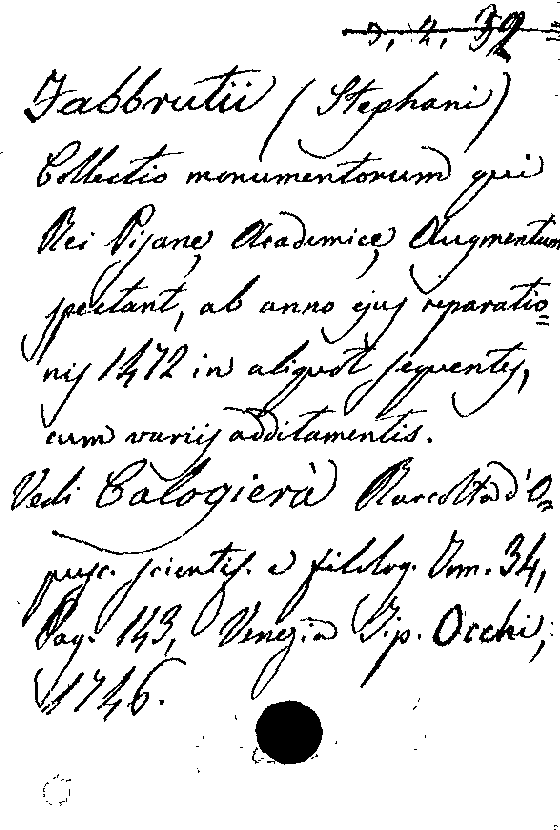 9. 2. 32
Fabbrutii (Stephani)
Collectio monumentorum qui
Rei Pisane Academice Augmentum
spectant, ab anno ejus reparatio=
nis 1472 in aliquot sequentes,
cum variis additamentis.
Vedi Calogierà Raccolta d'O=
pusc. scientif. e filolog. Tom. 34,
Pag. 143, Venezia Tip. Occhi,
1746.